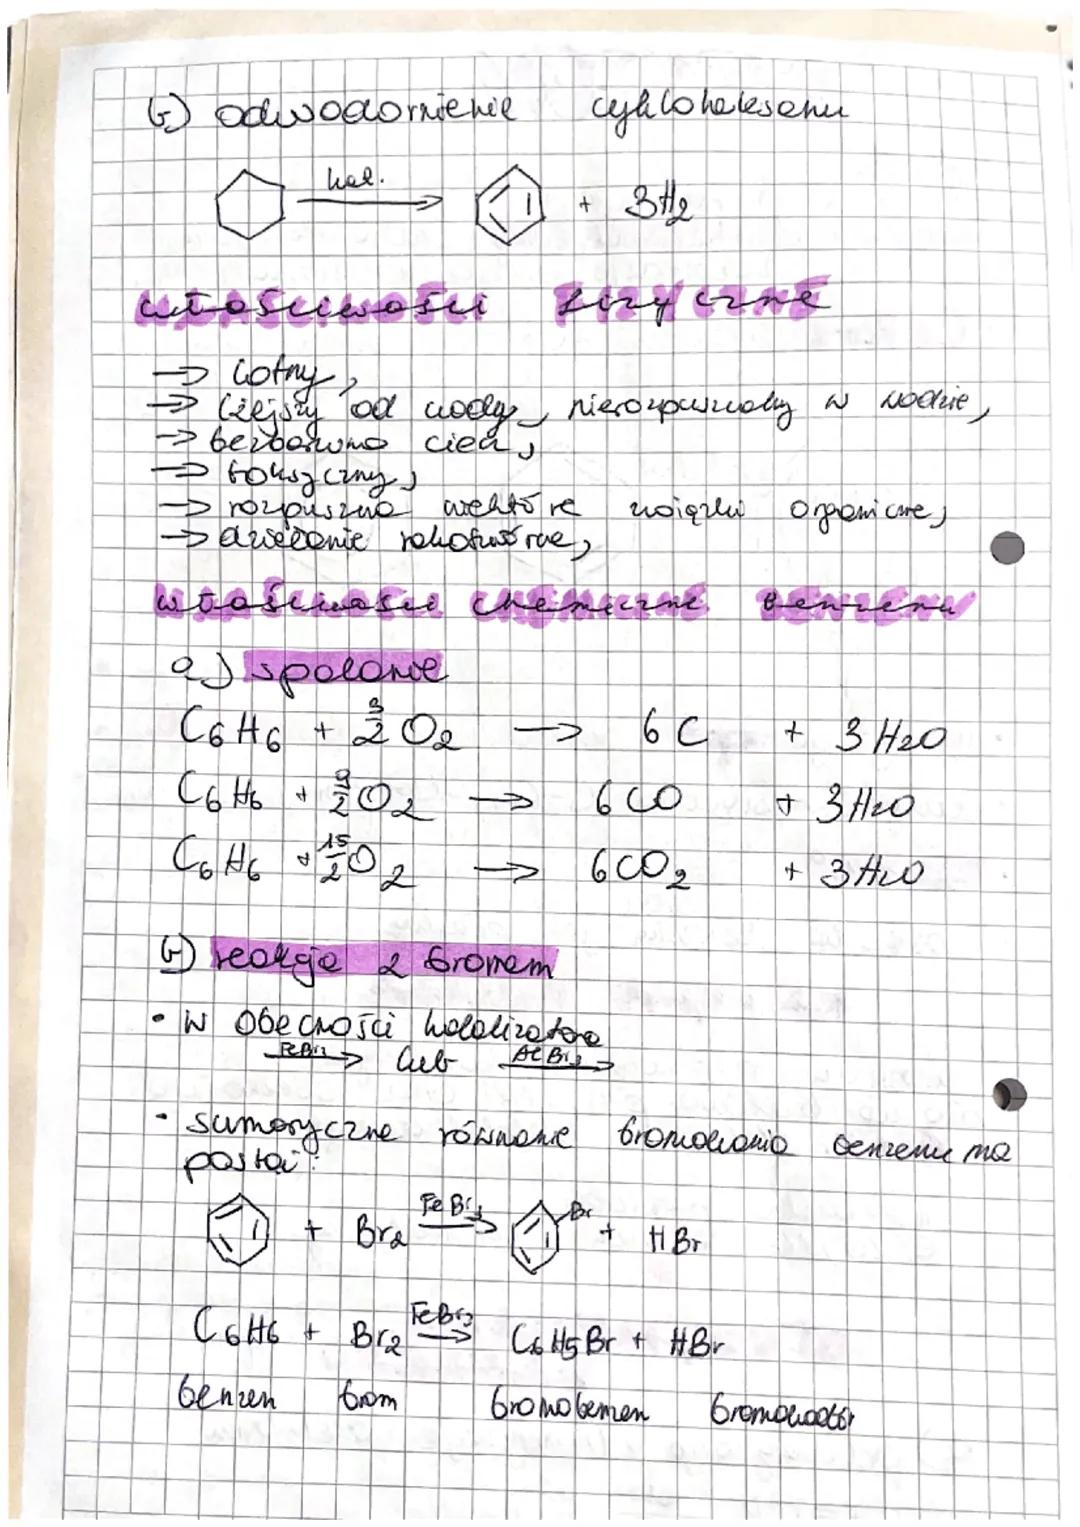 b) odwodornienie cykloheksanu
kat.
+ 3H2
właściwości fizyczne
→ lotny,
→ lżejszy od wody, nierozpuszczalny w wodzie,
→ bezbarwna ciecz,
→ toksyczny,
→ rozpuszcza niektóre związki organiczne,
→ działanie rakotwórcze,
właściwości chemiczne benzenu
a) spalanie
C6H6 + 3/2 O2 → 6C + 3H2O
C6H6 + 9/2 O2 → 6CO + 3H2O
C6H6 + 15/2 O2 → 6CO2 + 3H2O
b) reakcja z bromem
• w obecności katalizatora
FeBr3 → lub AlBr3 →
• sumaryczne równanie bromowania benzenu ma
postać:
+ Br2 FeBr3 → Br + HBr
C6H6 + Br2 FeBr3 → C6H5Br + HBr
benzen brom bromobenzen bromowodór